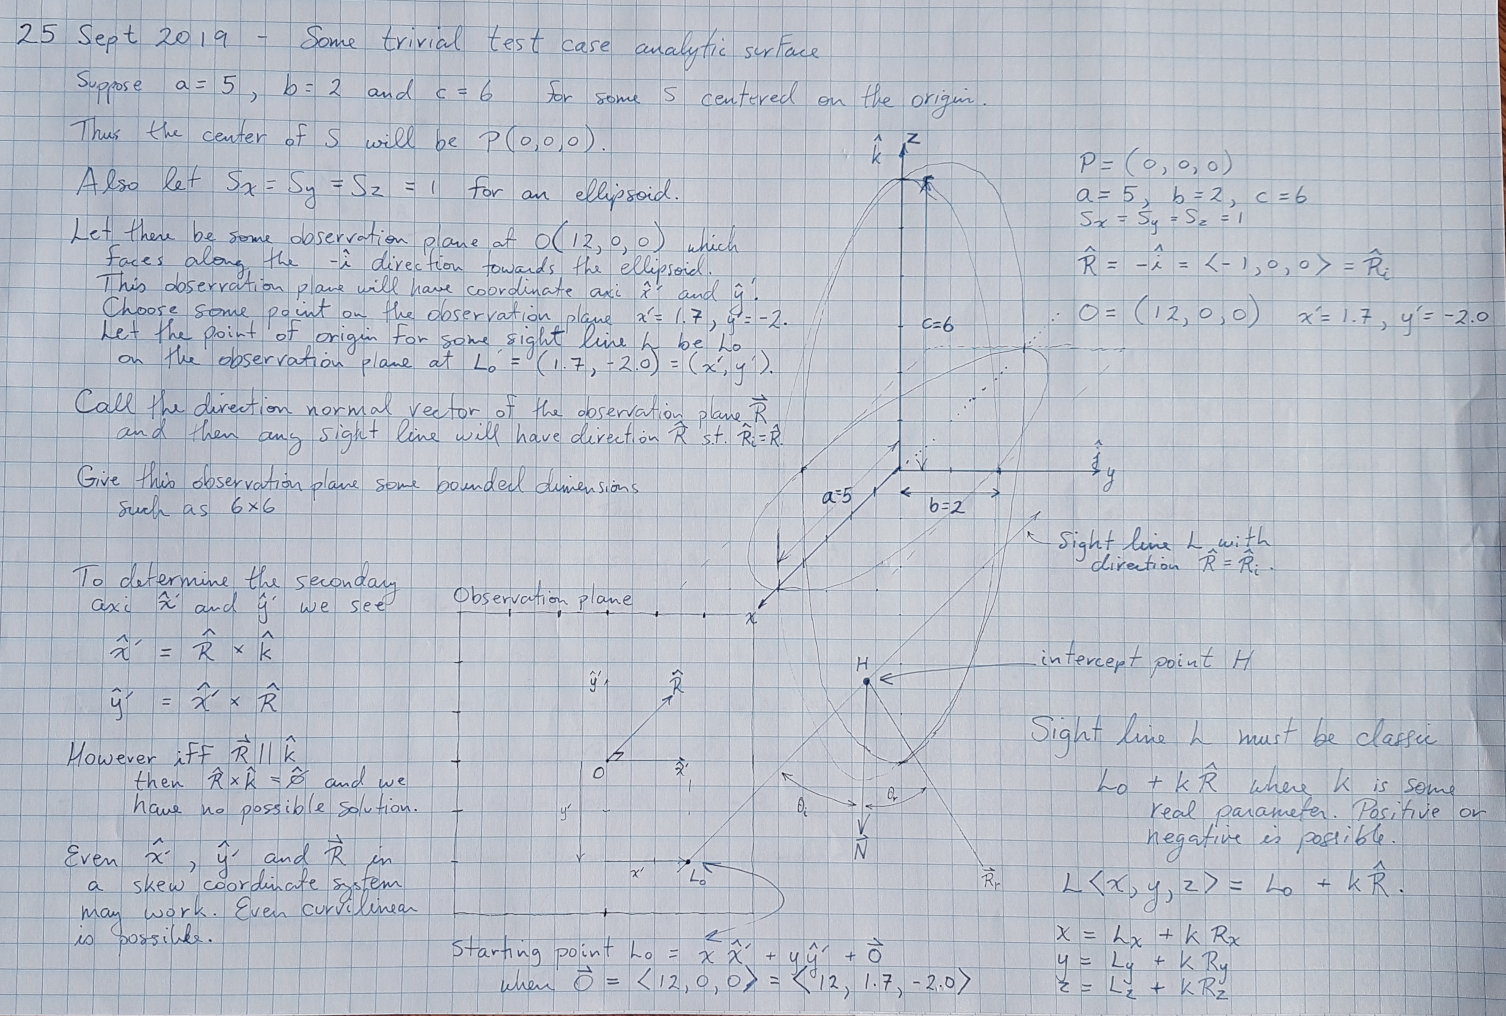 25 Sept 2019 - Some trivial test case analytic surface
Suppose a = 5, b = 2 and c = 6 for some S centered on the origin.
Thus the center of S will be P(0,0,0).
Also let Sx = Sy = Sz = 1 for an ellipsoid.
Let there be some observation plane at O(12,0,0) which
faces along the -î direction towards the ellipsoid.
This observation plane will have coordinate axi x̂′ and ŷ′.
Choose some point on the observation plane x′= 1.7, y′= -2.
Let the point of origin for some sight line L be L₀
on the observation plane at L₀′ = (1.7, -2.0) = (x′, y′).
Call the direction normal vector of the observation plane R⃗
and then any sight line will have direction R̂ st. R̂ᵢ=R̂.
Give this observation plane some bounded dimensions
such as 6×6
To determine the seconday
axi x̂′ and ŷ′ we see
x̂′ = R̂ × k̂
ŷ′ = x̂′ × R̂
However iff R⃗ || k̂
then R̂ × k̂ = 0̂ and we
have no possible solution.
Even x̂′, ŷ′ and R⃗ in
a skew coordinate system
may work. Even curvilinear
is possible.
k̂
z
c=6
a=5
b=2
ĵ
y
x
Sight line L with
direction R̂ = R̂ᵢ.
Observation plane
ŷ′
R̂
O
x̂′
y′
x′
L₀
H
intercept point H
θᵢ
θᵣ
N⃗
R⃗ᵣ
Starting point L₀ = x x̂′ + y ŷ′ + O⃗
when O⃗ = <12, 0, 0> = <12, 1.7, -2.0>
P = (0,0,0)
a = 5, b = 2, c = 6
Sx = Sy = Sz = 1
R̂ = -î = <-1, 0, 0> = R̂ᵢ
O = (12, 0, 0) x′= 1.7, y′= -2.0
Sight line L must be classic
L₀ + k R̂ where k is some
real parameter. Positive or
negative is possible.
L<x, y, z> = L₀ + k R̂.
x = Lx + k Rx
y = Ly + k Ry
z = Lz + k Rz